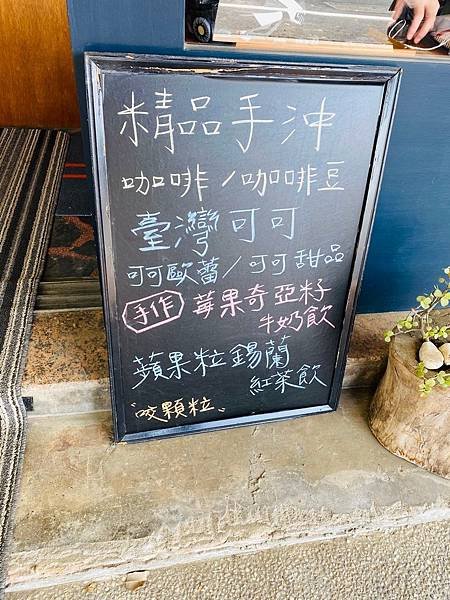 精品手沖
咖啡/咖啡豆
臺灣可可
可可歐蕾/可可甜品
手作 莓果奇亞籽
牛奶飲
蘋果粒錫蘭
紅茶飲
"咬顆粒"